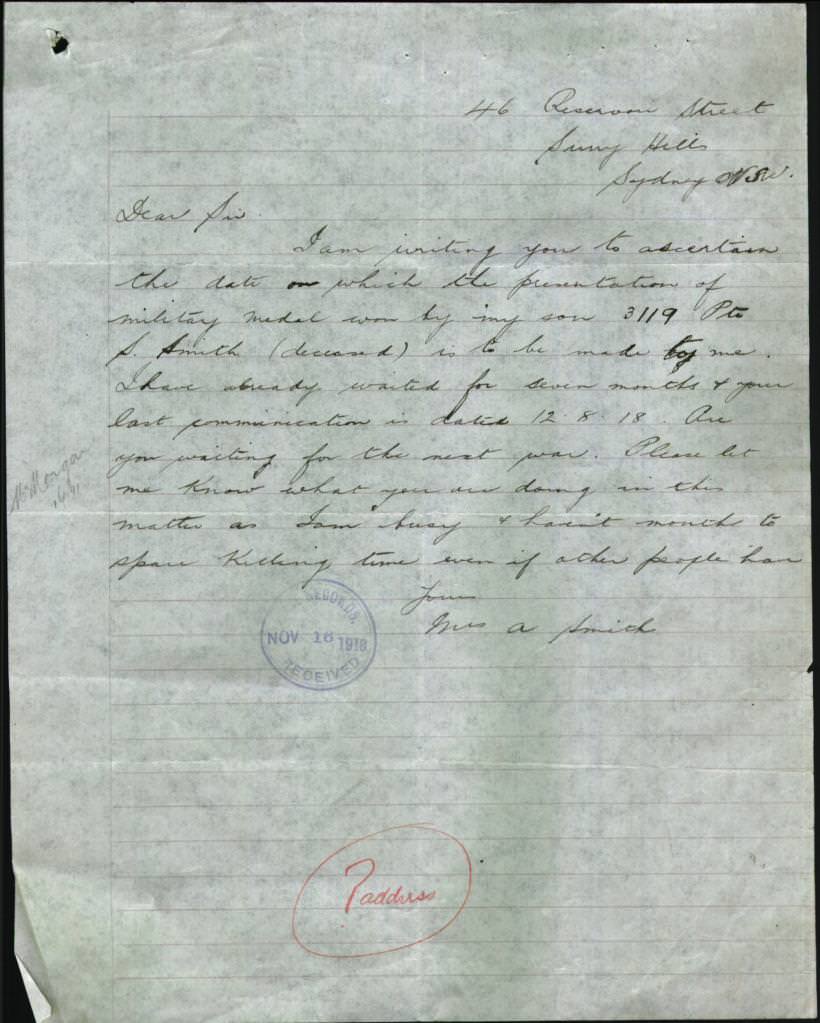 46 Reservoir Street
Surry Hills
Sydney NSW.
Dear Sir
I am writing you to ascertain
the date on which the presentation of
military medal won by my son 3119 Pte
S. Smith (deceased) is to be made to me.
I have already waited for seven months & your
last communication is dated 12.8.18. Are
you waiting for the next war. Please let
me know what you are doing in this
matter as I am busy & havn't months to
spare killing time even if other people have
Yours
Mrs A Smith
Mr Morgan
RECORDS.
NOV 18 1918
RECEIVED
? address